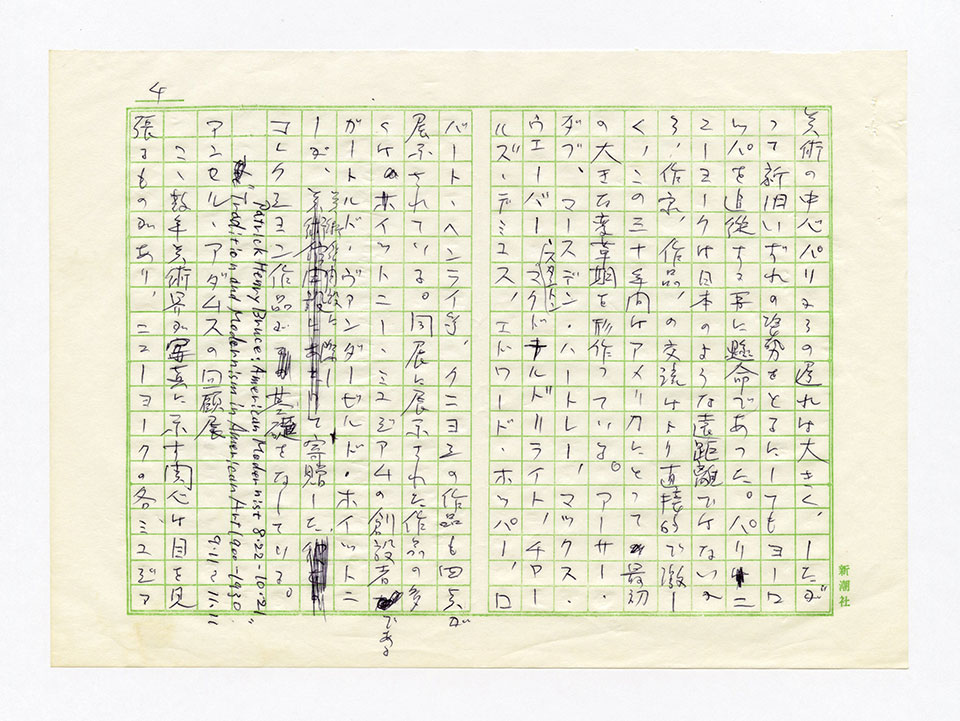 4
美術の中心パリよりの遅れは大きく、したが
って新旧いずれの姿勢をとるにしてもヨーロ
ッパを追従する事に懸命であった。パリ、ニ
ューヨークは日本のような遠距離ではないか
ら、作家、作品、の交流はより直接的で激し
く、この三十年間はアメリカにとって最初
の大きな変革期を形作っている。アーサー・
ダブ、マースデン・ハートレー、マックス・
ウエーバー、マクドナルドライト、チアー
ルズ・デミュス、エドワード・ホッパー、ロ
バート・ヘンライ等、クニヨシの作品も四点が
展示されている。同展に展示された作品の多
くはホイットニー・ミュジアムの創設者である
ガートルド・ヴァンダービルド・ホイットニ
ーが、美術館開設に際して寄贈した
コレクション作品が基礎をなしている。
Patrick Henry Bruce: American Modernist 8.22–10.21
"Tradition and Modernism in American Art 1900–1930" 9.11~11.11
アンセル・アダムスの回顧展
ここ数年美術界が写真に示す関心は目を見
張るものがあり、ニューヨークの各ミュジア
新潮社